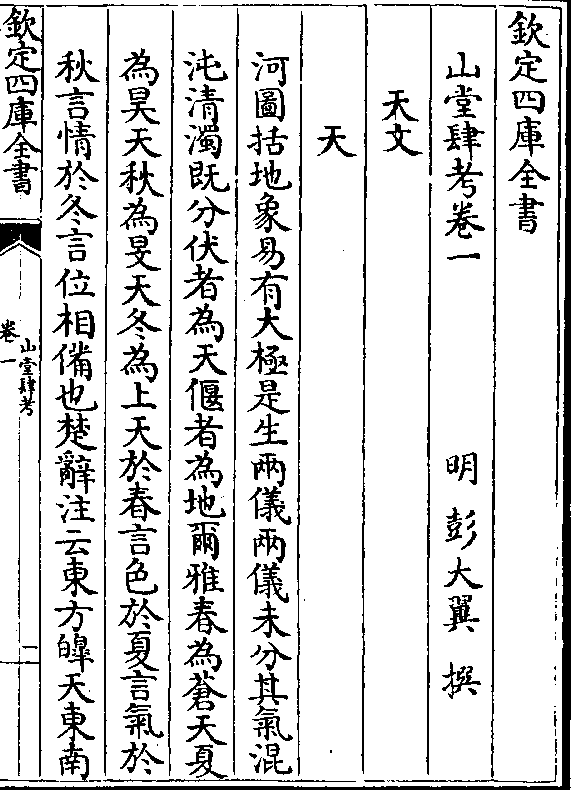 欽定四庫全書
山堂肆考卷一
明 彭大翼 撰
天文
天
河圖括地象易有大極是生兩儀兩儀未分其氣混
沌清濁既分伏者為天偃者為地爾雅春為蒼天夏
為昊天秋為旻天冬為上天於春言色於夏言氣於
秋言情於冬言位相備也楚辭注云東方皥天東南
欽定四庫全書
山堂肆考
卷一
一